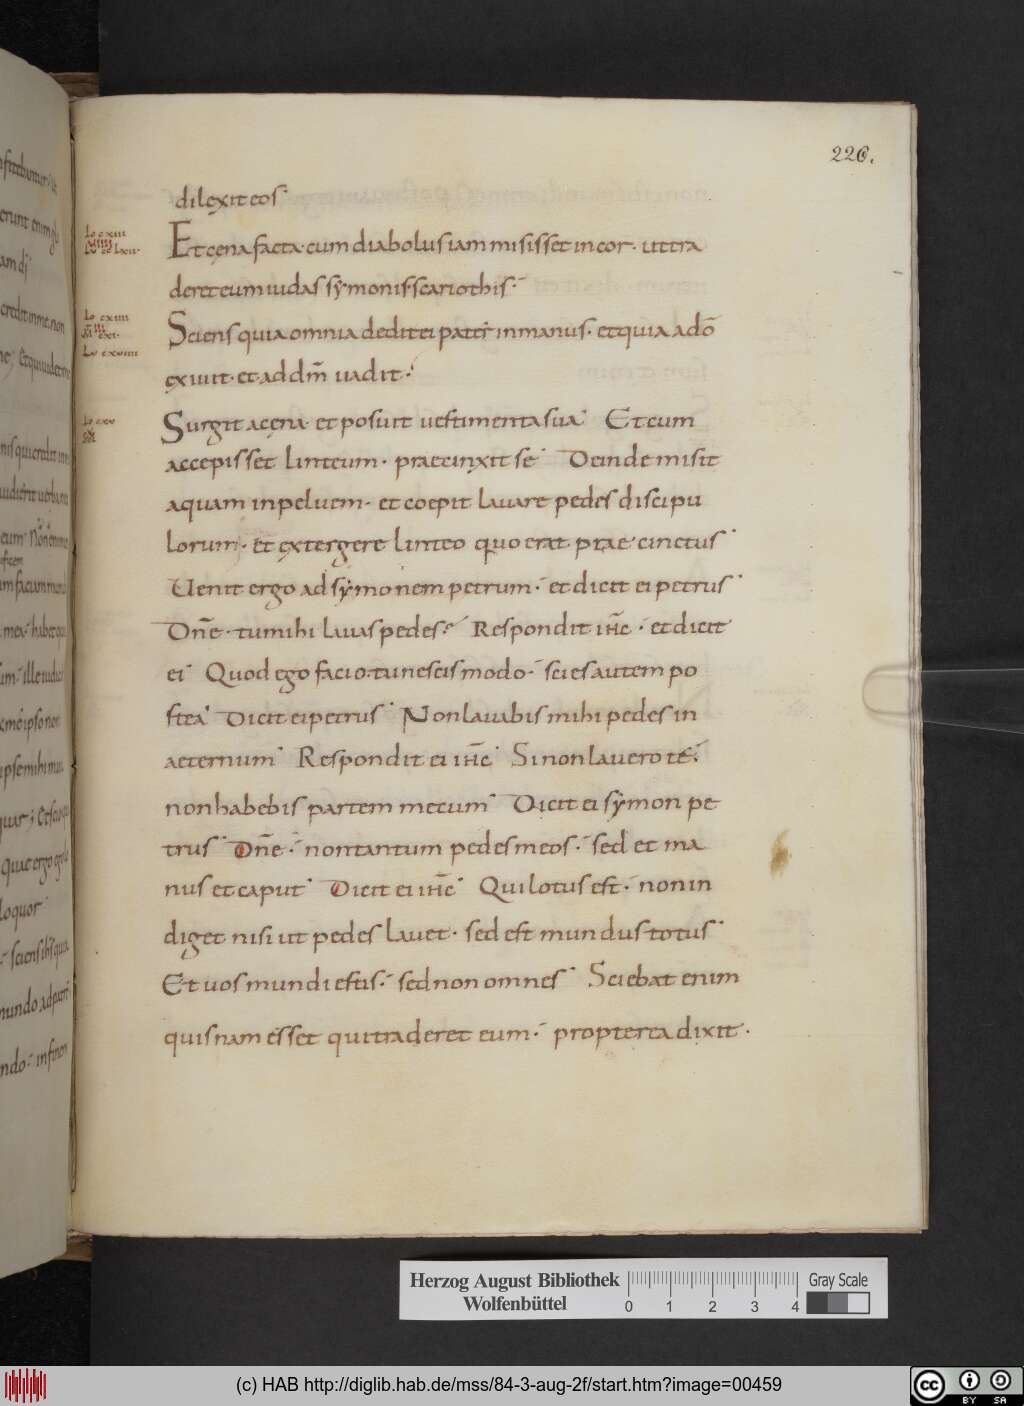 226.
dilexit eos
Et cena facta cum diabolus iam misisset in cor. ut tra
deret eum iudas symonis scariothis.
Sciens quia omnia dedit ei pater in manus. et quia a dō
exiuit. et ad dm̄ uadit.
Surgit a cena et posuit uestimenta sua Et cum
accepisset linteum. praecinxit se Deinde misit
aquam in peluem. et coepit lauare pedes discipu
lorum. et extergere linteo quo erat prae cinctus
Uenit ergo ad symonem petrum. et dicit ei petrus
Dn̄e. tu mihi lauas pedes? Respondit ih̄c. et dicit
ei Quod ego facio. tu nescis modo. scies autem po
stea Dicit ei petrus Non lauabis mihi pedes in
aeternum Respondit ei ih̄c Si non lauero te.
non habebis partem mecum Dicit ei symon pe
trus Dn̄e. non tantum pedes meos. sed et ma
nus et caput Dicit ei ih̄c Qui lotus est. non in
diget nisi ut pedes lauet. sed est mundus totus
Et uos mundi estis. sed non omnes Sciebat enim
quisnam esset qui traderet eum. propterea dixit.
Herzog August Bibliothek
Wolfenbüttel
0 1 2 3 4
Gray Scale
(c) HAB http://diglib.hab.de/mss/84-3-aug-2f/start.htm?image=00459
cc BY SA